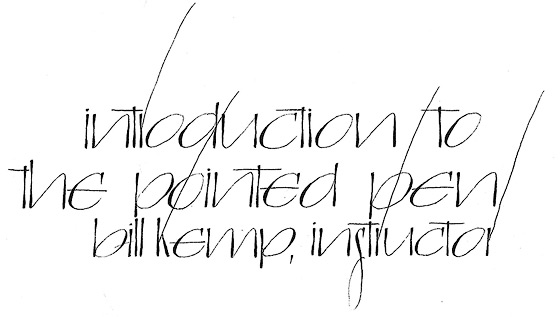 introduction to
the pointed pen
bill kemp, instructor